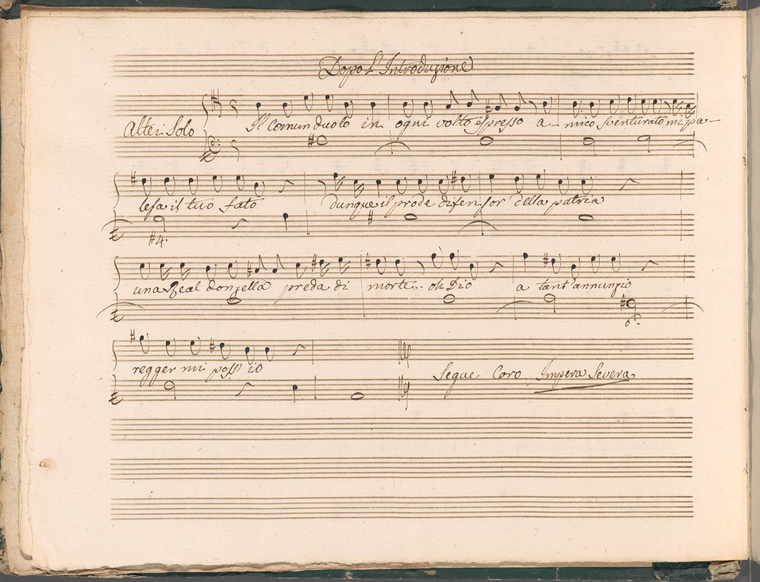 Dopo L'Introduzione
Altei Solo Il comun duolo in ogni volto espresso a-mico sventurato mi pa-
lesa il tuo fato dunque il prode difensor della patria
#4.
una Real donzella preda di morte.. oh Dio a tant'annunzio
6.
regger mi poss'io
Segue Coro Impera Severa